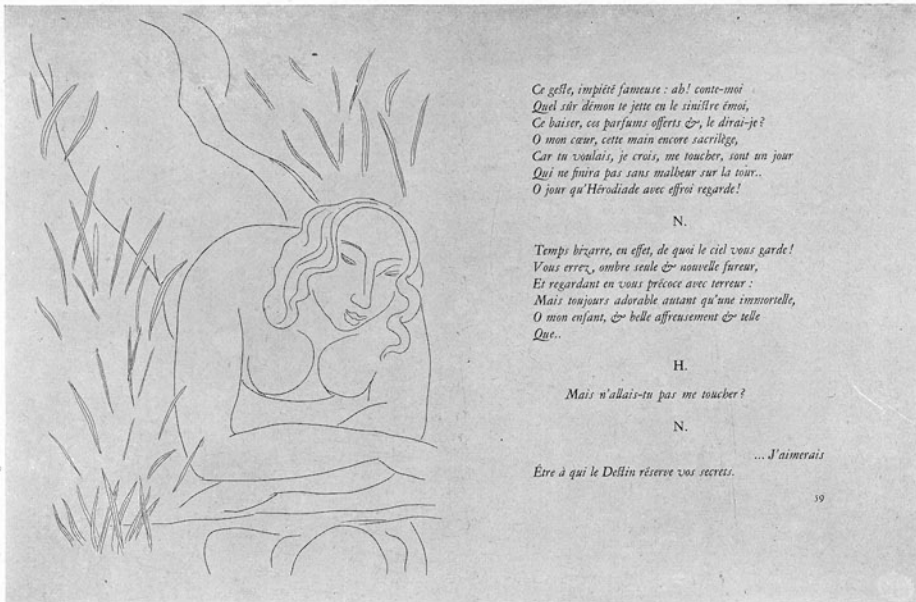 Ce geste, impiété fameuse : ah! conte-moi
Quel sûr démon te jette en le sinistre émoi,
Ce baiser, ces parfums offerts &, le dirai-je?
O mon cœur, cette main encore sacrilège,
Car tu voulais, je crois, me toucher, sont un jour
Qui ne finira pas sans malheur sur la tour..
O jour qu'Hérodiade avec effroi regarde!
N.
Temps bizarre, en effet, de quoi le ciel vous garde!
Vous errez, ombre seule & nouvelle fureur,
Et regardant en vous précoce avec terreur :
Mais toujours adorable autant qu'une immortelle,
O mon enfant, & belle affreusement & telle
Que..
H.
Mais n'allais-tu pas me toucher?
N.
... J'aimerais
Être à qui le Destin réserve vos secrets.
59